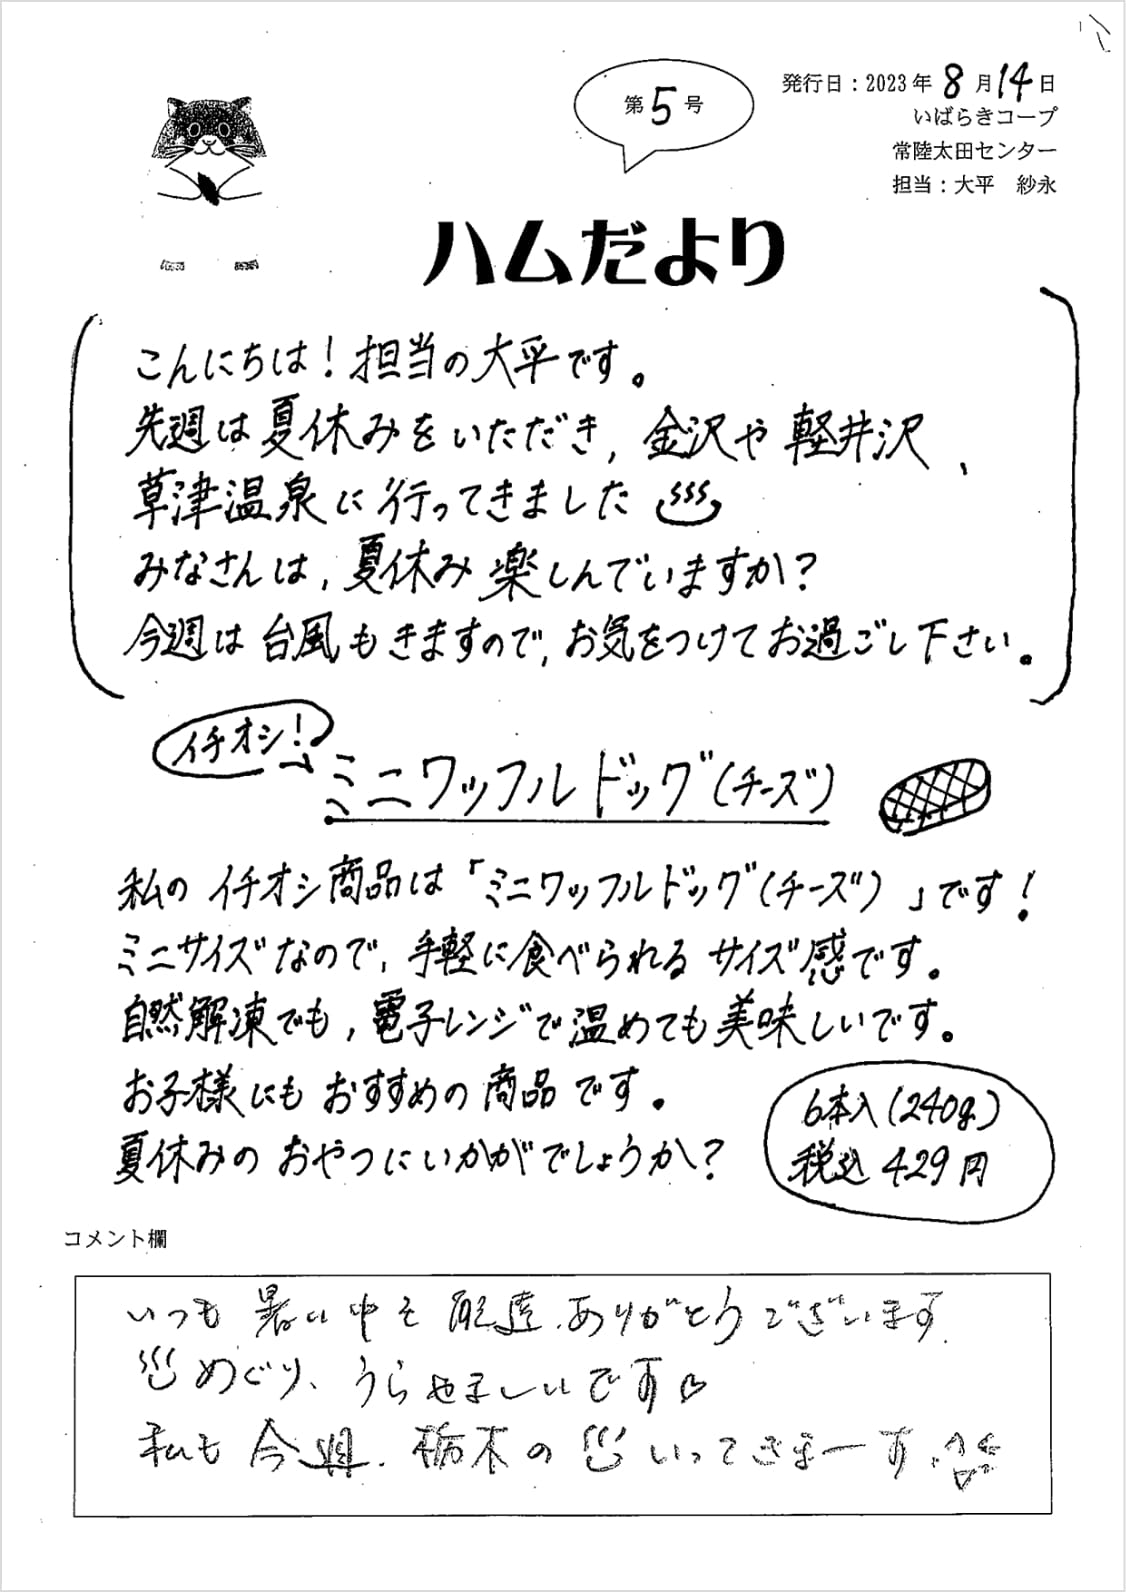 第5号
発行日：2023年8月14日
いばらきコープ
常陸太田センター
担当：大平 紗永
ハムだより
こんにちは！担当の大平です。
先週は夏休みをいただき、金沢や軽井沢、
草津温泉に行ってきました♨
みなさんは、夏休み楽しんでいますか？
今週は台風もきますので、お気をつけてお過ごし下さい。
イチオシ！
→ミニワッフルドッグ（チーズ）
私のイチオシ商品は「ミニワッフルドッグ（チーズ）」です！
ミニサイズなので、手軽に食べられるサイズ感です。
自然解凍でも、電子レンジで温めても美味しいです。
お子様にもおすすめの商品です。
夏休みのおやつにいかがでしょうか？
6本入（240g）
税込429円
コメント欄
いつも暑い中を配達、ありがとうございます
♨めぐり、うらやましいです♡
私も今週、栃木の♨いってきまーす